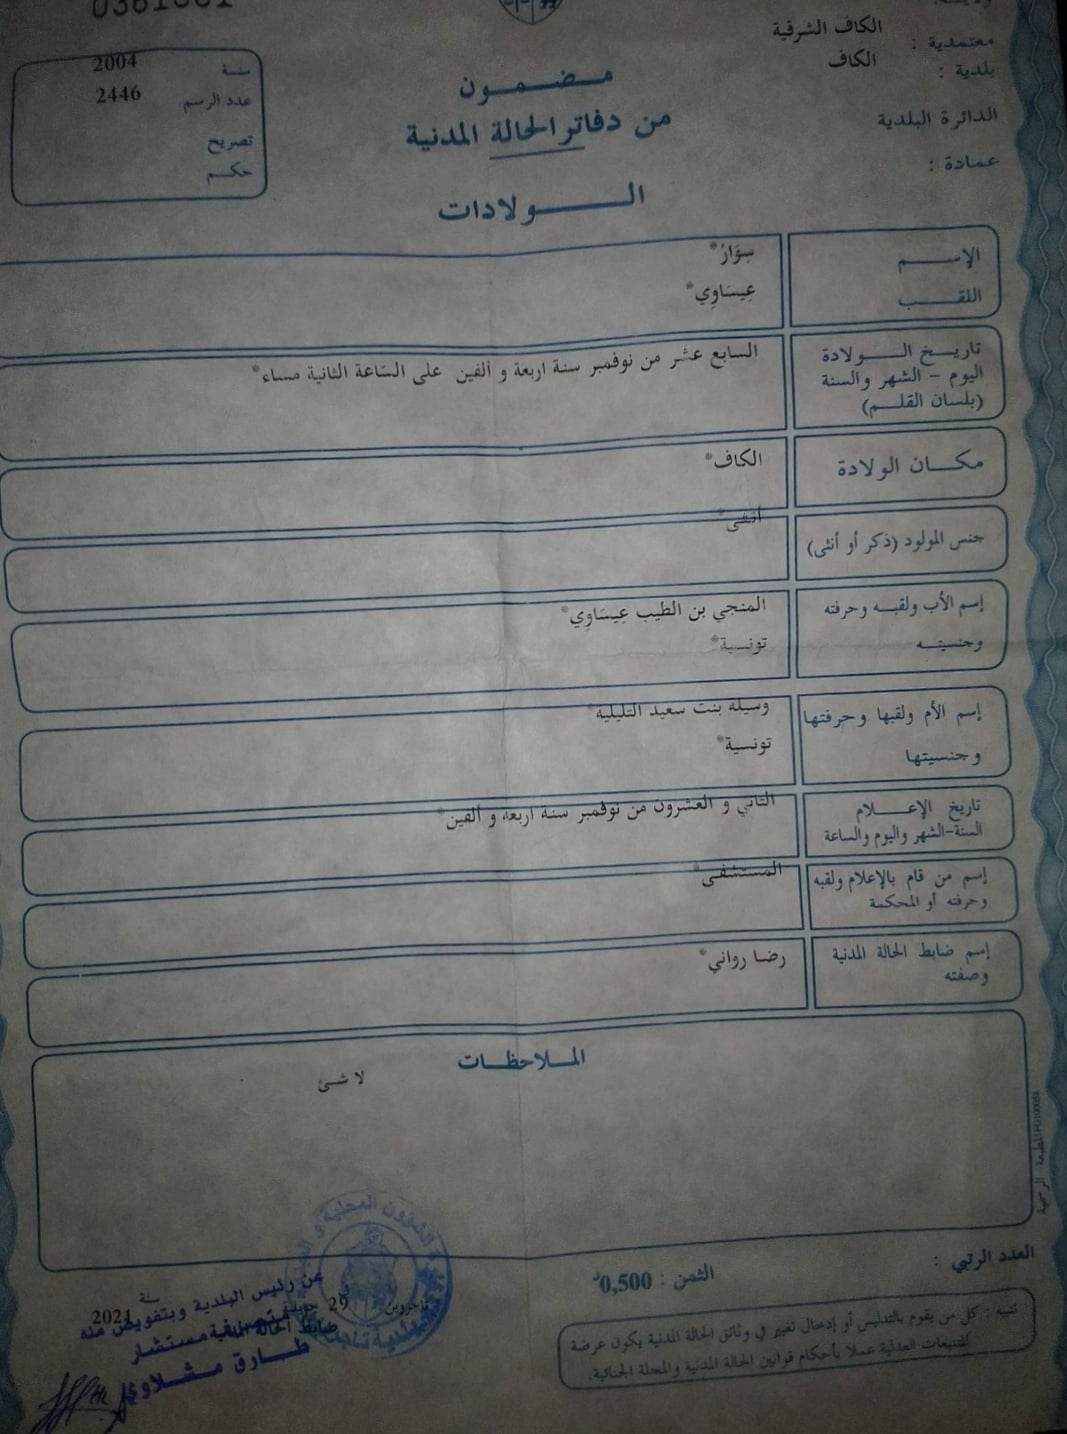 معتمدية : الكاف الشرقية
بلدية : الكاف
الدائرة البلدية
عمادة :
مضمون
من دفاتر الحالة المدنية
الولادات
سنة 2004
عدد الرسم 2446
تصريح
حكم
الإسم سِوَارْ*
اللقب عِيسَاوِي*
تاريخ الولادة السابع عشر من نوفمبر سنة اربعة و ألفين على الساعة الثانية مساء*
اليوم - الشهر والسنة
(بلسان القلم)
مكان الولادة الكاف*
جنس المولود (ذكر أو أنثى) أنثى*
إسم الأب ولقبه وحرفته المنجي بن الطيب عِيسَاوِي*
وجنسيته تونسية*
إسم الأم ولقبها وحرفتها وسيلة بنت سعيد التليلية*
وجنسيتها تونسية*
تاريخ الإعلام الثاني و العشرون من نوفمبر سنة اربعة و ألفين*
السنة-الشهر واليوم والساعة
إسم من قام بالإعلام ولقبه المستشفى*
وحرفته أو المحكمة
إسم ضابط الحالة المدنية رضا رواني*
وصفته
الملاحظات
لا شئ
العدد الرتبي :
الثمن : 0,500د
تنبيه : كل من يقوم بالتدليس أو إدخال تغيير في وثائق الحالة المدنية يكون عرضة
للتتبعات العدلية عملا بأحكام قوانين الحالة المدنية والمجلة الجنائية.
تاجروين في 29 جويلية سنة 2021
ضابط الحالة المدنية
عن رئيس البلدية وبتفويض منه
متصرف مستشار
طارق مشلاوي
المطبعة الرسمية